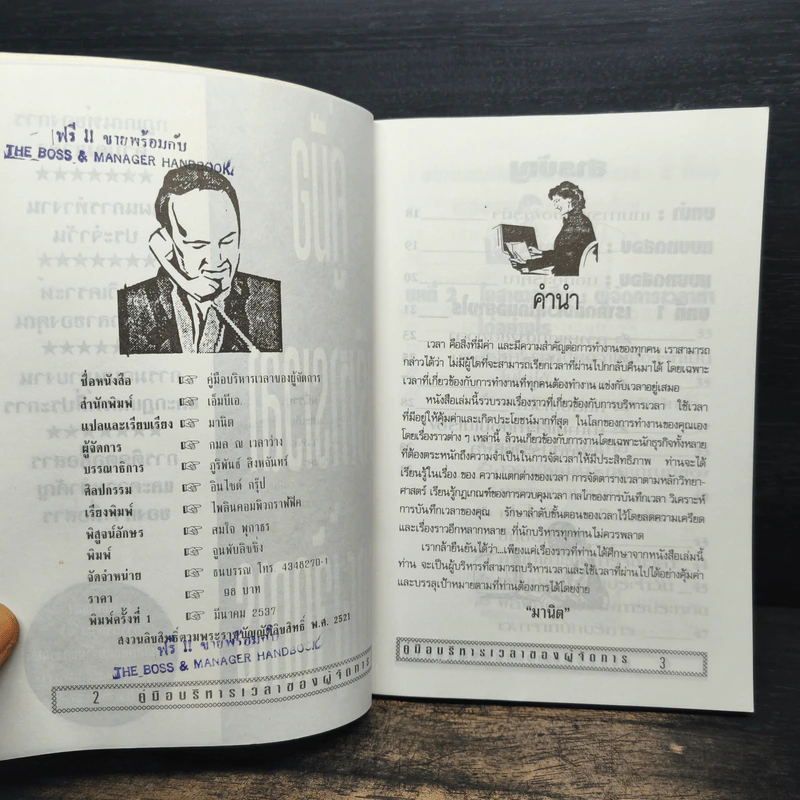 ฟรี !! ขายพร้อมกับ
THE BOSS & MANAGER HANDBOOK
ชื่อหนังสือ ☞ คู่มือบริหารเวลาของผู้จัดการ
สำนักพิมพ์ ☞ เอ็มบีเอ.
แปลและเรียบเรียง ☞ มานิต
ผู้จัดการ ☞ กมล ณ เวลาว่าง
บรรณาธิการ ☞ ภูริพันธ์ สิงหลันทร์
ศิลปกรรม ☞ อินไซด์ กรุ๊ป
เรียงพิมพ์ ☞ ไพลินคอมพิวกราฟฟิค
พิสูจน์อักษร ☞ สมใจ พุกาธร
พิมพ์ ☞ จูนพับลิชชิ่ง
จัดจำหน่าย ☞ ธนบรรณ โทร 4348270-1
ราคา ☞ 98 บาท
พิมพ์ครั้งที่ 1 ☞ มีนาคม 2537
สงวนลิขสิทธิ์ตามพระราชบัญญัติลิขสิทธิ์ พ.ศ. 2521
ฟรี !! ขายพร้อมกับ
THE BOSS & MANAGER HANDBOOK
2 คู่มือบริหารเวลาของผู้จัดการ
คำนำ
เวลา คือสิ่งที่มีค่า และมีความสำคัญต่อการทำงานของทุกคน เราสามารถ
กล่าวได้ว่า ไม่มีผู้ใดที่จะสามารถเรียกเวลาที่ผ่านไปกกลับคืนมาได้ โดยเฉพาะ
เวลาที่เกี่ยวข้องกับการทำงานที่ทุกคนต้องทำงาน แข่งกับเวลาอยู่เสมอ
หนังสือเล่มนี้รวบรวมเรื่องราวที่เกี่ยวข้องกับการบริหารเวลา ใช้เวลา
ที่มีอยู่ให้คุ้มค่าและเกิดประโยชน์มากที่สุด ในโลกของการทำงานของคุณเอง
โดยเรื่องราวต่าง ๆ เหล่านี้ ล้วนเกี่ยวข้องกับการงานโดยเฉพาะนักธุรกิจทั้งหลาย
ที่ต้องตระหนักถึงความจำเป็นในการจัดเวลาให้มีประสิทธิภาพ ท่านจะได้
เรียนรู้ในเรื่อง ของ ความแตกต่างของเวลา การจัดตารางเวลาตามหลักวิทยา-
ศาสตร์ เรียนรู้กฎเกณฑ์ของการควบคุมเวลา กลไกของการบันทึกเวลา วิเคราะห์
การบันทึกเวลาของคุณ รักษาลำดับขั้นตอนของเวลาไว้โดยลดความเครียด
และเรื่องราวอีกหลากหลาย ที่นักบริหารทุกท่านไม่ควรพลาด
เรากล้ายืนยันได้ว่า...เพียงแค่เรื่องราวที่ท่านได้ศึกษาจากหนังสือเล่มนี้
ท่าน จะเป็นผู้บริหารที่สามารถบริหารเวลาและใช้เวลาที่ผ่านไปได้อย่างคุ้มค่า
และบรรลุเป้าหมายตามที่ท่านต้องการได้โดยง่าย
"มานิต"
คู่มือบริหารเวลาของผู้จัดการ 3